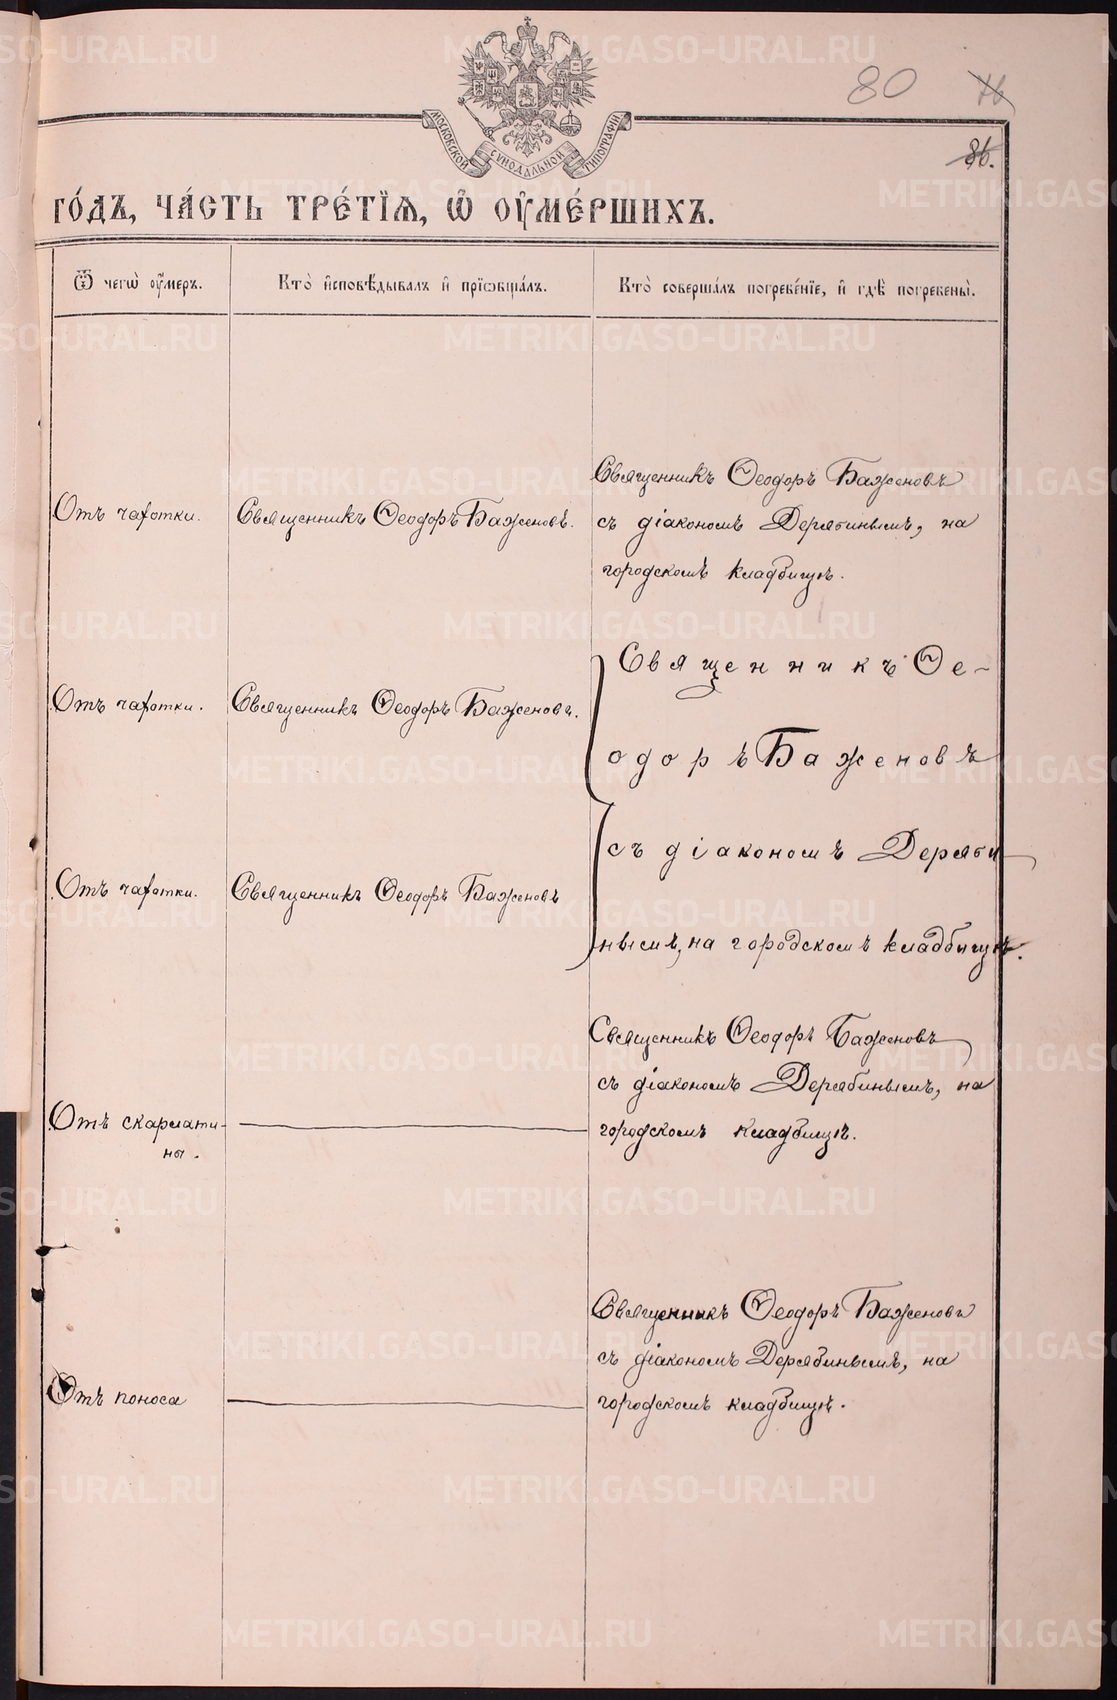 80 76
86.
МОСКОВСКОЙ СѴНОДАЛЬНОЙ ТИПОГРАФІИ
ГО́ДЪ, ЧА́СТЬ ТРЕ́ТЇѦ, Ѡ҆ ОУ҆МЕ́РШИХЪ.
Ѿ чегѡ̀ оу҆́меръ.
Кто̀ и҆сповѣ́дывалъ и҆ прїѡбща́лъ.
Кто̀ соверша́лъ погребе́нїе, и҆ гдѣ̀ погребены̀.
Отъ чахотки.
Священникъ Ѳеодоръ Баженовъ.
Священникъ Ѳеодоръ Баженовъ
съ діакономъ Дерябинымъ, на
городскомъ кладбищѣ.
Отъ чахотки.
Священникъ Ѳеодоръ Баженовъ.
Священникъ Ѳе-
одоръ Баженовъ
съ діакономъ Деряби
нымъ, на городскомъ кладбищѣ.
Отъ чахотки.
Священникъ Ѳеодоръ Баженовъ
Отъ скарлати-
ны.
Священникъ Ѳеодоръ Баженовъ
съ діакономъ Дерябинымъ, на
городскомъ кладбищѣ.
Отъ поноса
Священникъ Ѳеодоръ Баженовъ
съ діакономъ Дерябинымъ, на
городскомъ кладбищѣ.
METRIKI.GASO-URAL.RU